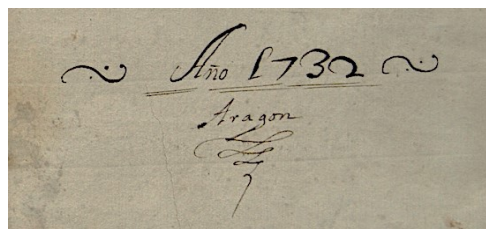 Año 1732
Aragon